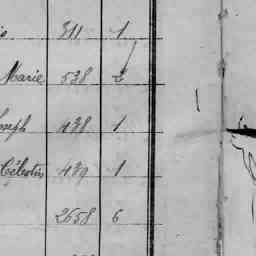 is 311 1
Marie 538 2
Joseph 438 1
Célestin 439 1
2658 6